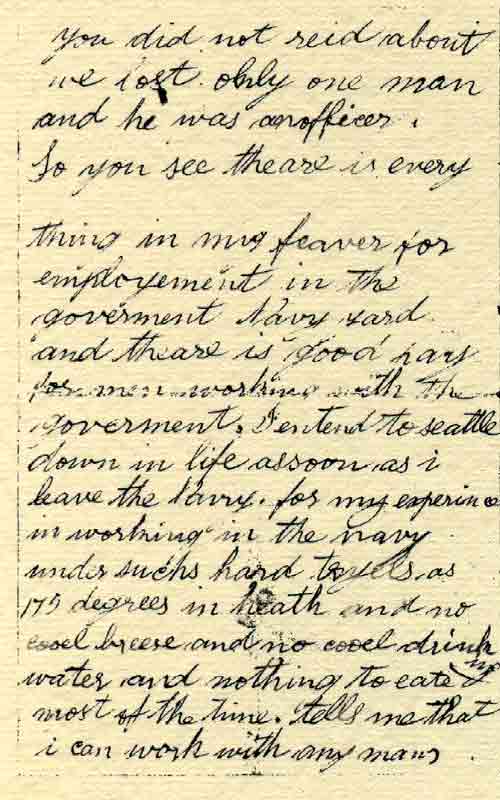 you did not reid about
we lost only one man
and he was anofficer.
So you see theare is every
thing in my feaver for
employement in the
goverment Navy yard
and theare is good pay
for men working with the
goverment. I entend to seattle
down in life assoon as i
leave the Navy. for my experince
in working in the navy
under suchs hard tryels as
175 degrees in heath and no
cooel breese and no cooel drink
ing
water and nothing to eate
most of the time. tells me that
i can work with any man